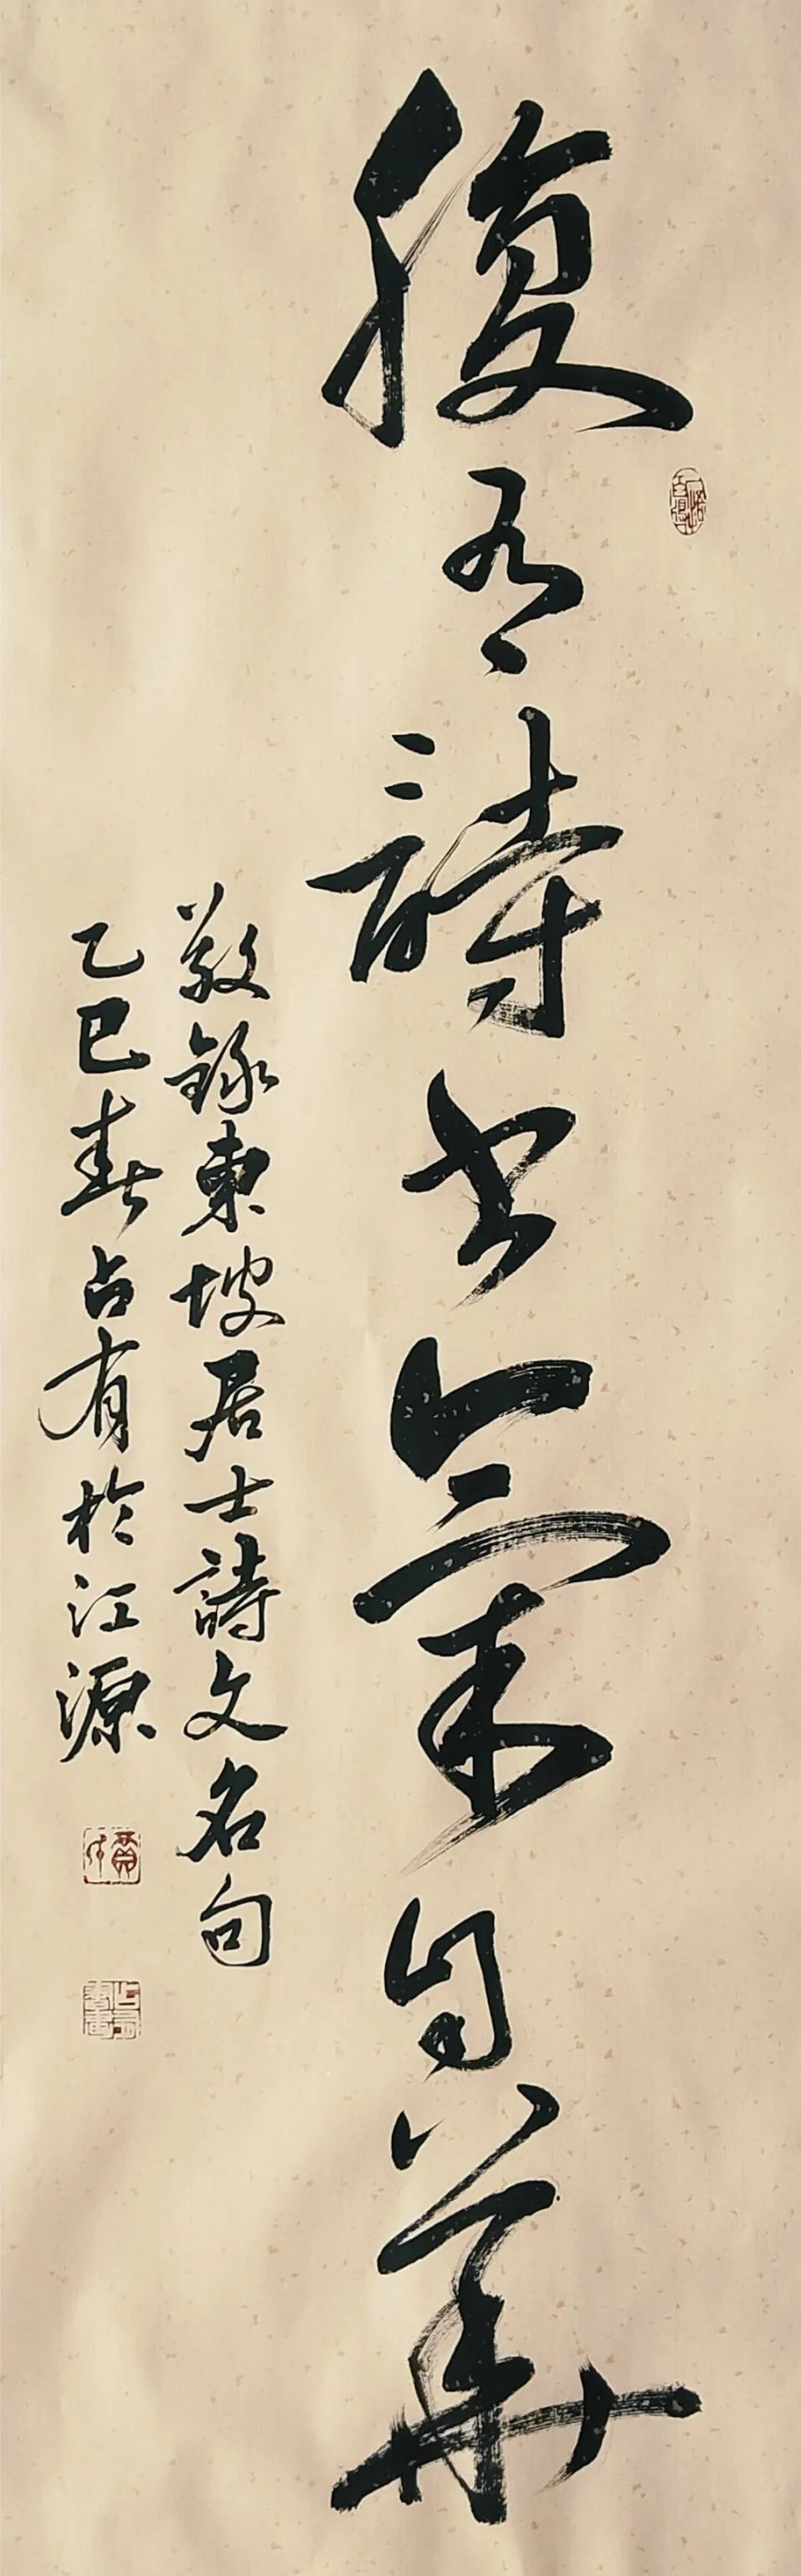 腹有詩书氣自華
敬錄東坡居士詩文名句
乙巳春占有於江源